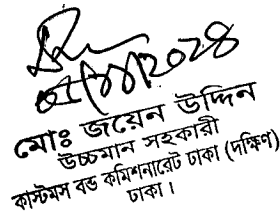 মোঃ জয়েন উদ্দিন
উচ্চমান সহকারী
কাস্টমস বন্ড কমিশনারেট ঢাকা (দক্ষিণ)
ঢাকা।